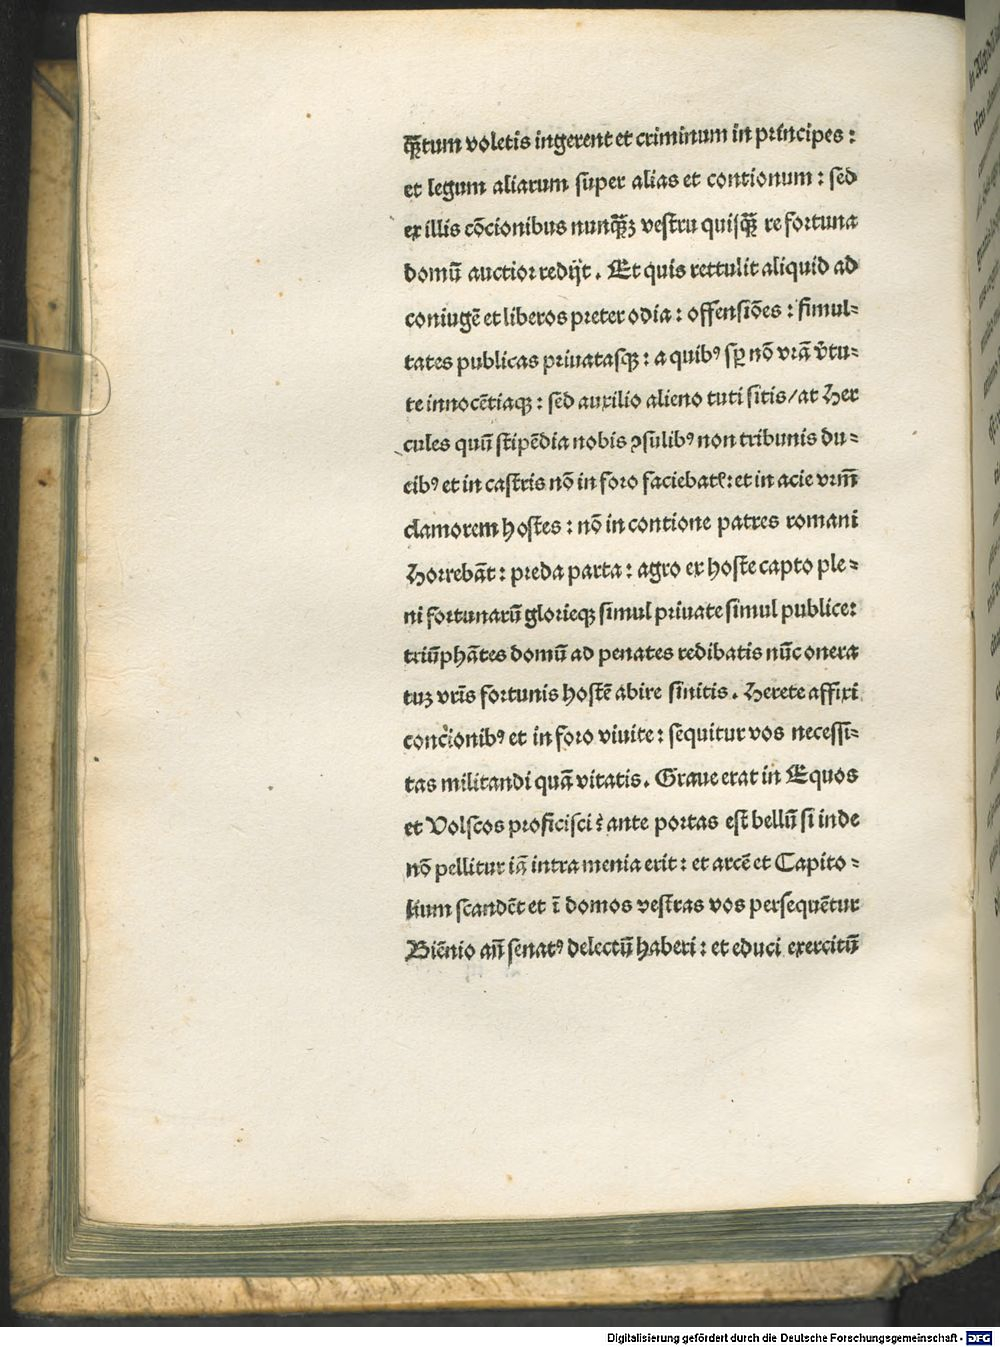 ꝙ̃tum voletis ingerent et criminum in principes :
et legum aliarum super alias et contionum : sed
ex illis cōcionibus nunꝙ̃ꝫ vestru quisꝙ̃ re fortuna
domū auctior redijt . Et quis rettulit aliquid ad
coniugē et liberos preter odia : offensiōes : simul⸗
tates publicas priuatasqꝫ : a quibꝰ sꝑ nō vrā v̓tu⸗
te innocētiaqꝫ : sed auxilio alieno tuti sitis/at Her
cules quū stipēdia nobis ꝯsulibꝰ non tribunis du⸗
cibꝰ et in castris nō in foro faciebatꝭ: et in acie vrm̄
clamorem hostes : nō in contione patres romani
Horrebāt : preda parta : agro ex hoste capto ple⸗
ni fortunarū glorieqꝫ simul priuate simul publice:
triūphātes domū ad penates redibatis nūc onera
tuꝫ vrīs fortunis hostē abire sinitis . Herete affixi
concionibꝰ et in foro viuite : sequitur vos necessi⸗
tas militandi quā vitatis . Graue erat in Equos
et Volscos proficisci : ante portas est bellū si inde
nō pellitur iā intra menia erit : et arcē et Capito ⸗
lium scandēt et ī domos vestras vos persequētur
Biēnio añ senatꝰ delectū haberi : et educi exercitū
Digitalisierung gefördert durch die Deutsche Forschungsgemeinschaft - DFG